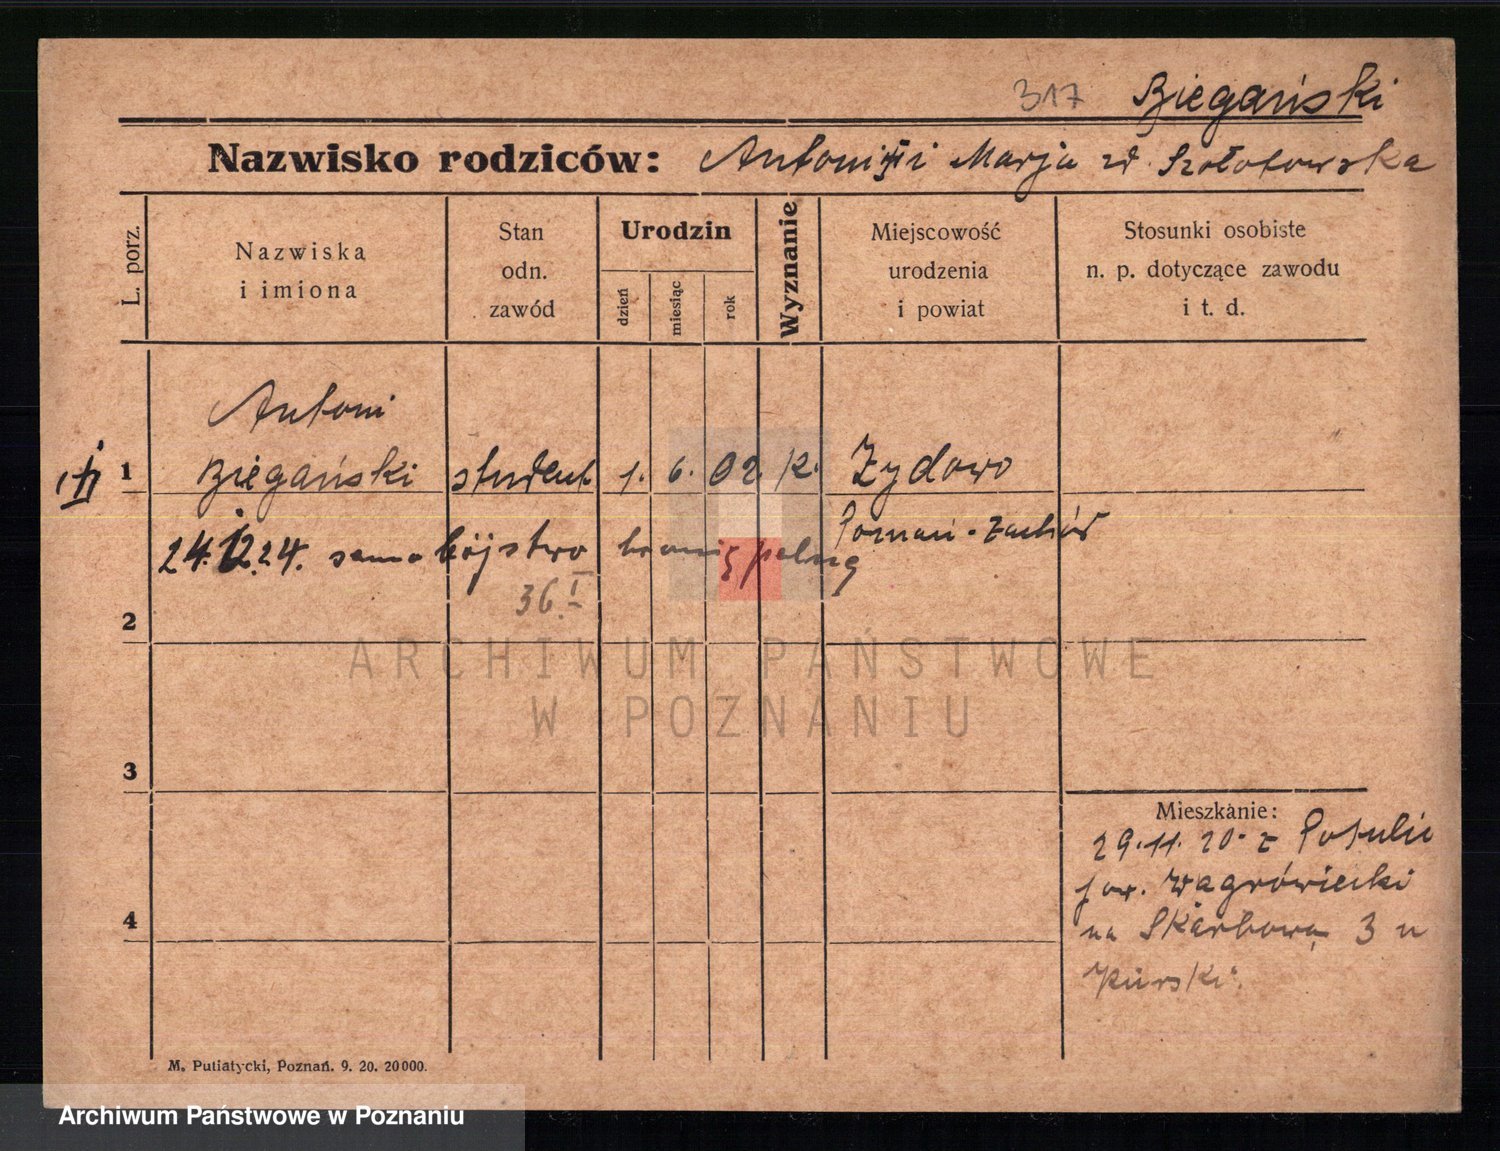 317 Biegański
Nazwisko rodziców: Antoni i Marja zd Szołotowska
L. porz.
Nazwiska
i imiona
Stan
odn.
zawód
Urodzin
dzień
miesiąc
rok
Wyznanie
Miejscowość
urodzenia
i powiat
Stosunki osobiste
n. p. dotyczące zawodu
i t. d.
Antoni
1 Biegański student 1. 6. 02 k. Żydowo
Poznań-Zachód
24.12.24. samobójstwo bronią palną
36 I
2
3
4
Mieszkanie:
29.11.20. z Potulic
pow. Wągrówiecki
na Skarbową 3 u
Kurski.
M. Putiatycki, Poznań. 9. 20. 20000.
ARCHIWUM PAŃSTWOWE
W POZNANIU
Archiwum Państwowe w Poznaniu